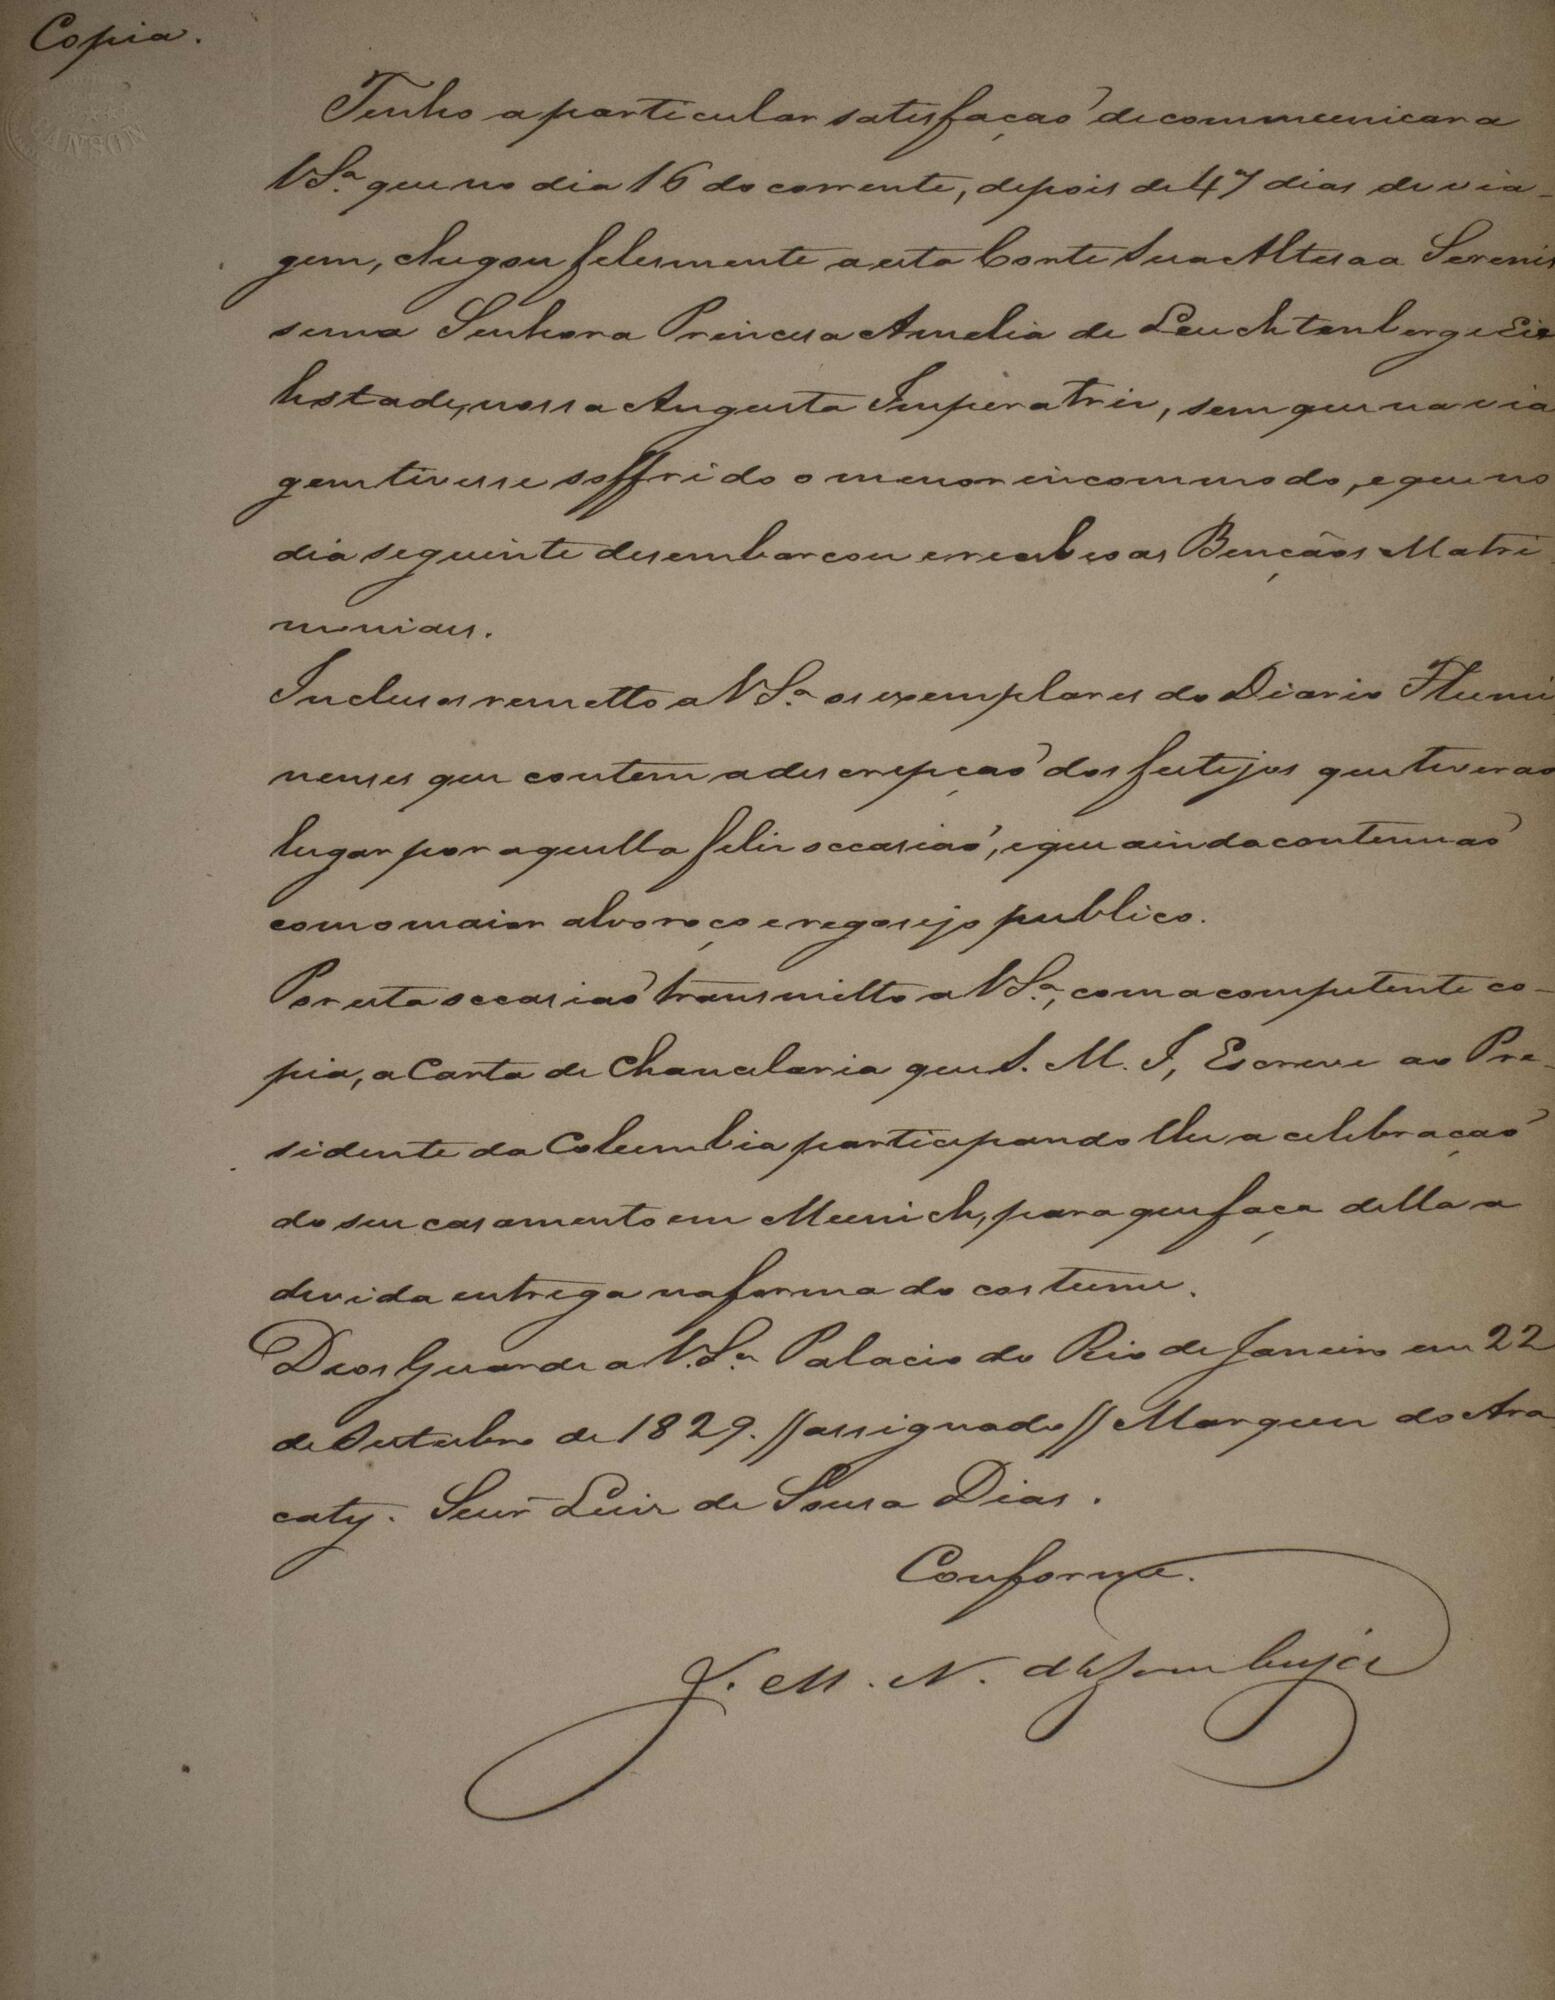 Copia.
Tenho a particular satisfação de communicar a
V Sª que no dia 16 do corrente, depois de 47 dias de via-
gem, chegou felismente a esta Corte Sua Altesa a Serenis
sima Senhora Princesa Amelia de Leuchtenberg e Eis
hstade, nossa Augusta Imperatriz, sem que na via
gem tivesse soffrido o menor incommodo, e que no
dia seguinte desembarcou e recebeo as Bençãos Matri
moniaes.
Inclusos remetto a V Sª os exemplares do Diario Flumi
nenses que contem a descripção dos festejos que tiverao
lugar por aquella feliz occasião, e que ainda continuão
com o maior alvoroço e regosijo publico.
Por esta occasião transmitto a V Sª, com a competente co-
pia, a Carta de Chancelaria que S. M. I, Escreve ao Pre-
sidente da Columbia participando lhe a celebração
do seu casamento em Munich, para que faça della a
devida entrega na forma do costume.
Deos Guarde a V. Sª Palacio do Rio de Janeiro em 22
de Outubro de 1829. // assignado // Marquez do Ara
caty. Senr Luiz de Sousa Dias.
Conforme.
J. M. N. d'Azambuja